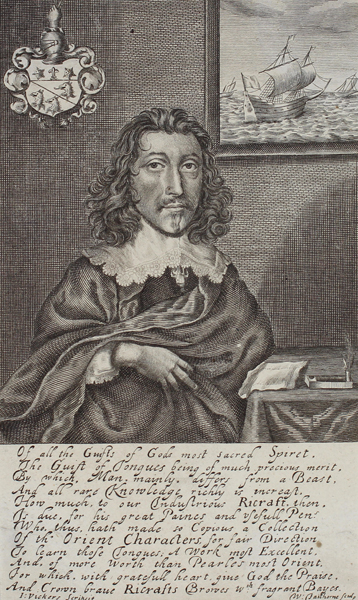 Of all the Guifts of Gods most sacred Spiret,
The Guift of Tongues being of much precious merit,
By which, Man, mainly, differs from a Beast,
And all rare Knowledge richly is increast,
How much, to our Industrious Ricraft, then,
Is due, for his great Paines and usefull Pen
Who, thus, hath made so Copious a Collection
Of the Orient Characters for fair Direction
To learn those Tongues. A Work most Excellent,
And, of more Worth than Pearles most Orient.
For which, with gratefull heart, give God the Praise,
And Crown brave Ricrafts Browes wth fragrant Bayes.
I: Vickers Scripsit W: Faithorne sculp